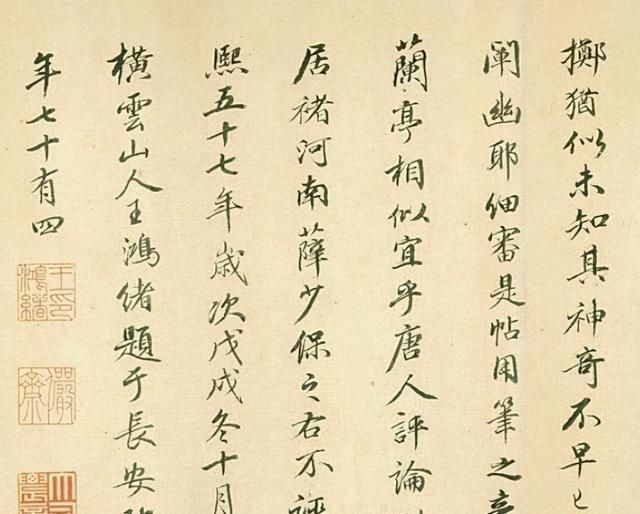 擲猶似未知其神奇不早已
闡幽耶細審是帖用筆之
蘭亭相似宜乎唐人評論
居褚河南薛少保之右不誣
熙五十七年歲次戊戌冬十月
橫雲山人王鴻緒題于長安
年七十有四
王鴻緒印
儼齋